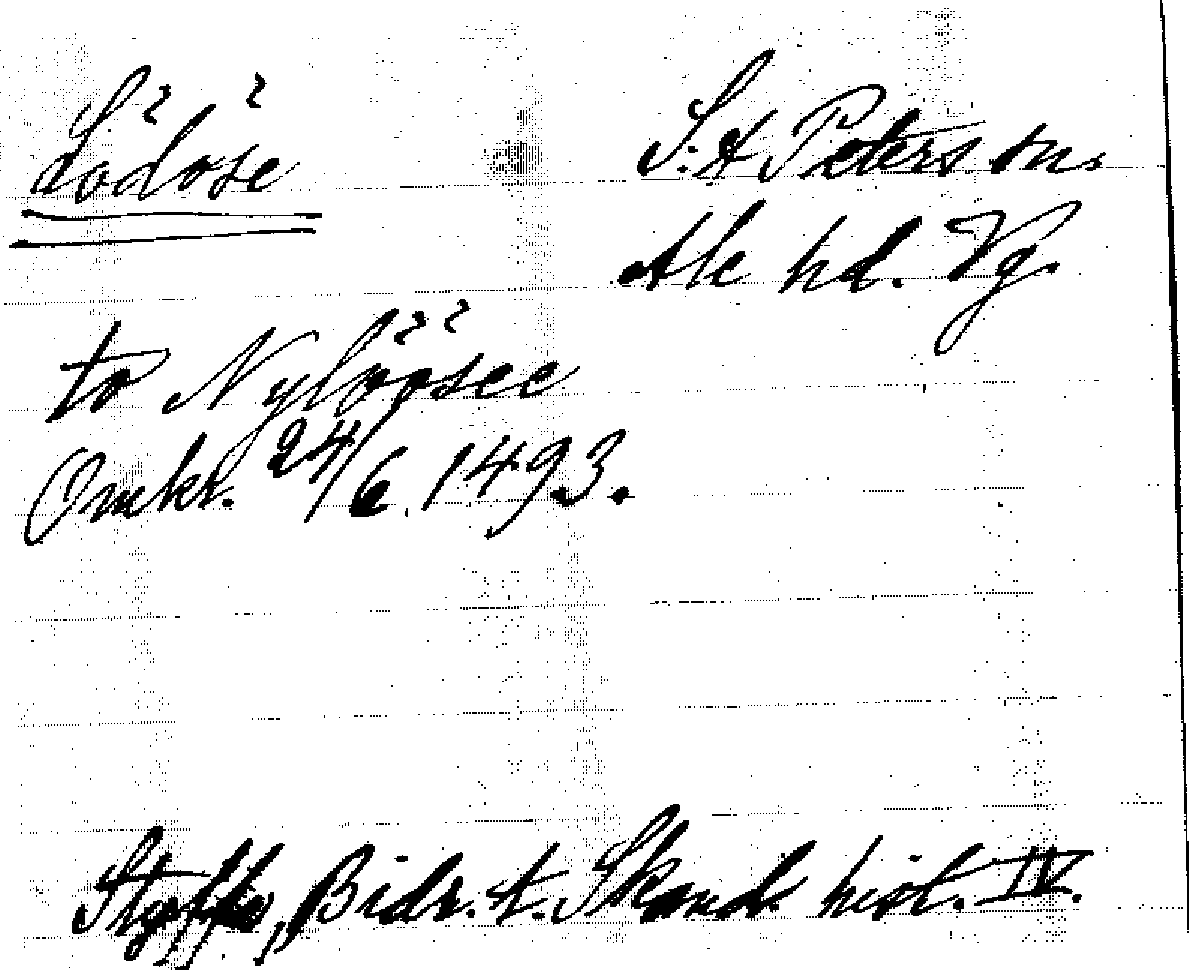 Lödöse
S:t Peters sn.
Ale hd. Vg.
to Nylöösee
Omkr. 24/6 1493.
Styffe, Bidr. t. Skand. hist. IV.